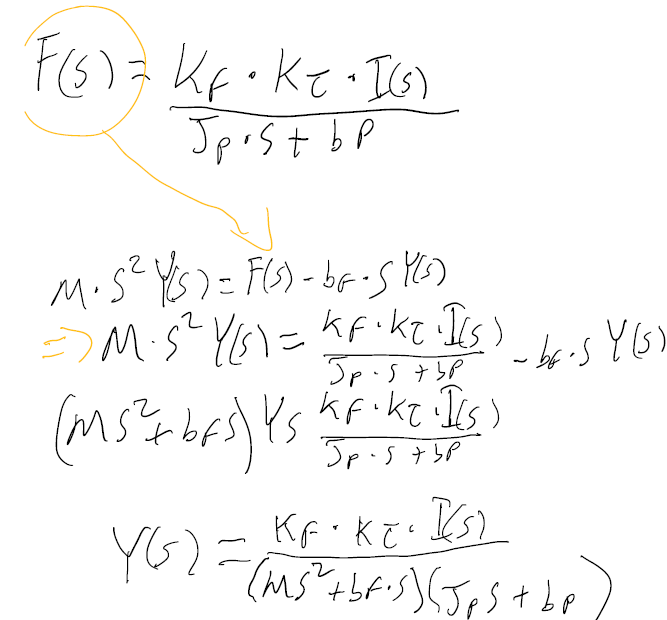 F(s) = K_F · K_τ · I(s) / J_P · s + b_P
M · s² Y(s) = F(s) - b_F · s Y(s)
=> M · s² Y(s) = K_F · K_τ · I(s) / J_P · s + b_P - b_F · s Y(s)
(Ms² + b_F s) Ys K_F · K_τ · I(s) / J_P · s + b_P
Y(s) = K_F · K_τ · I(s) / (Ms² + b_F · s)(J_P s + b_P)